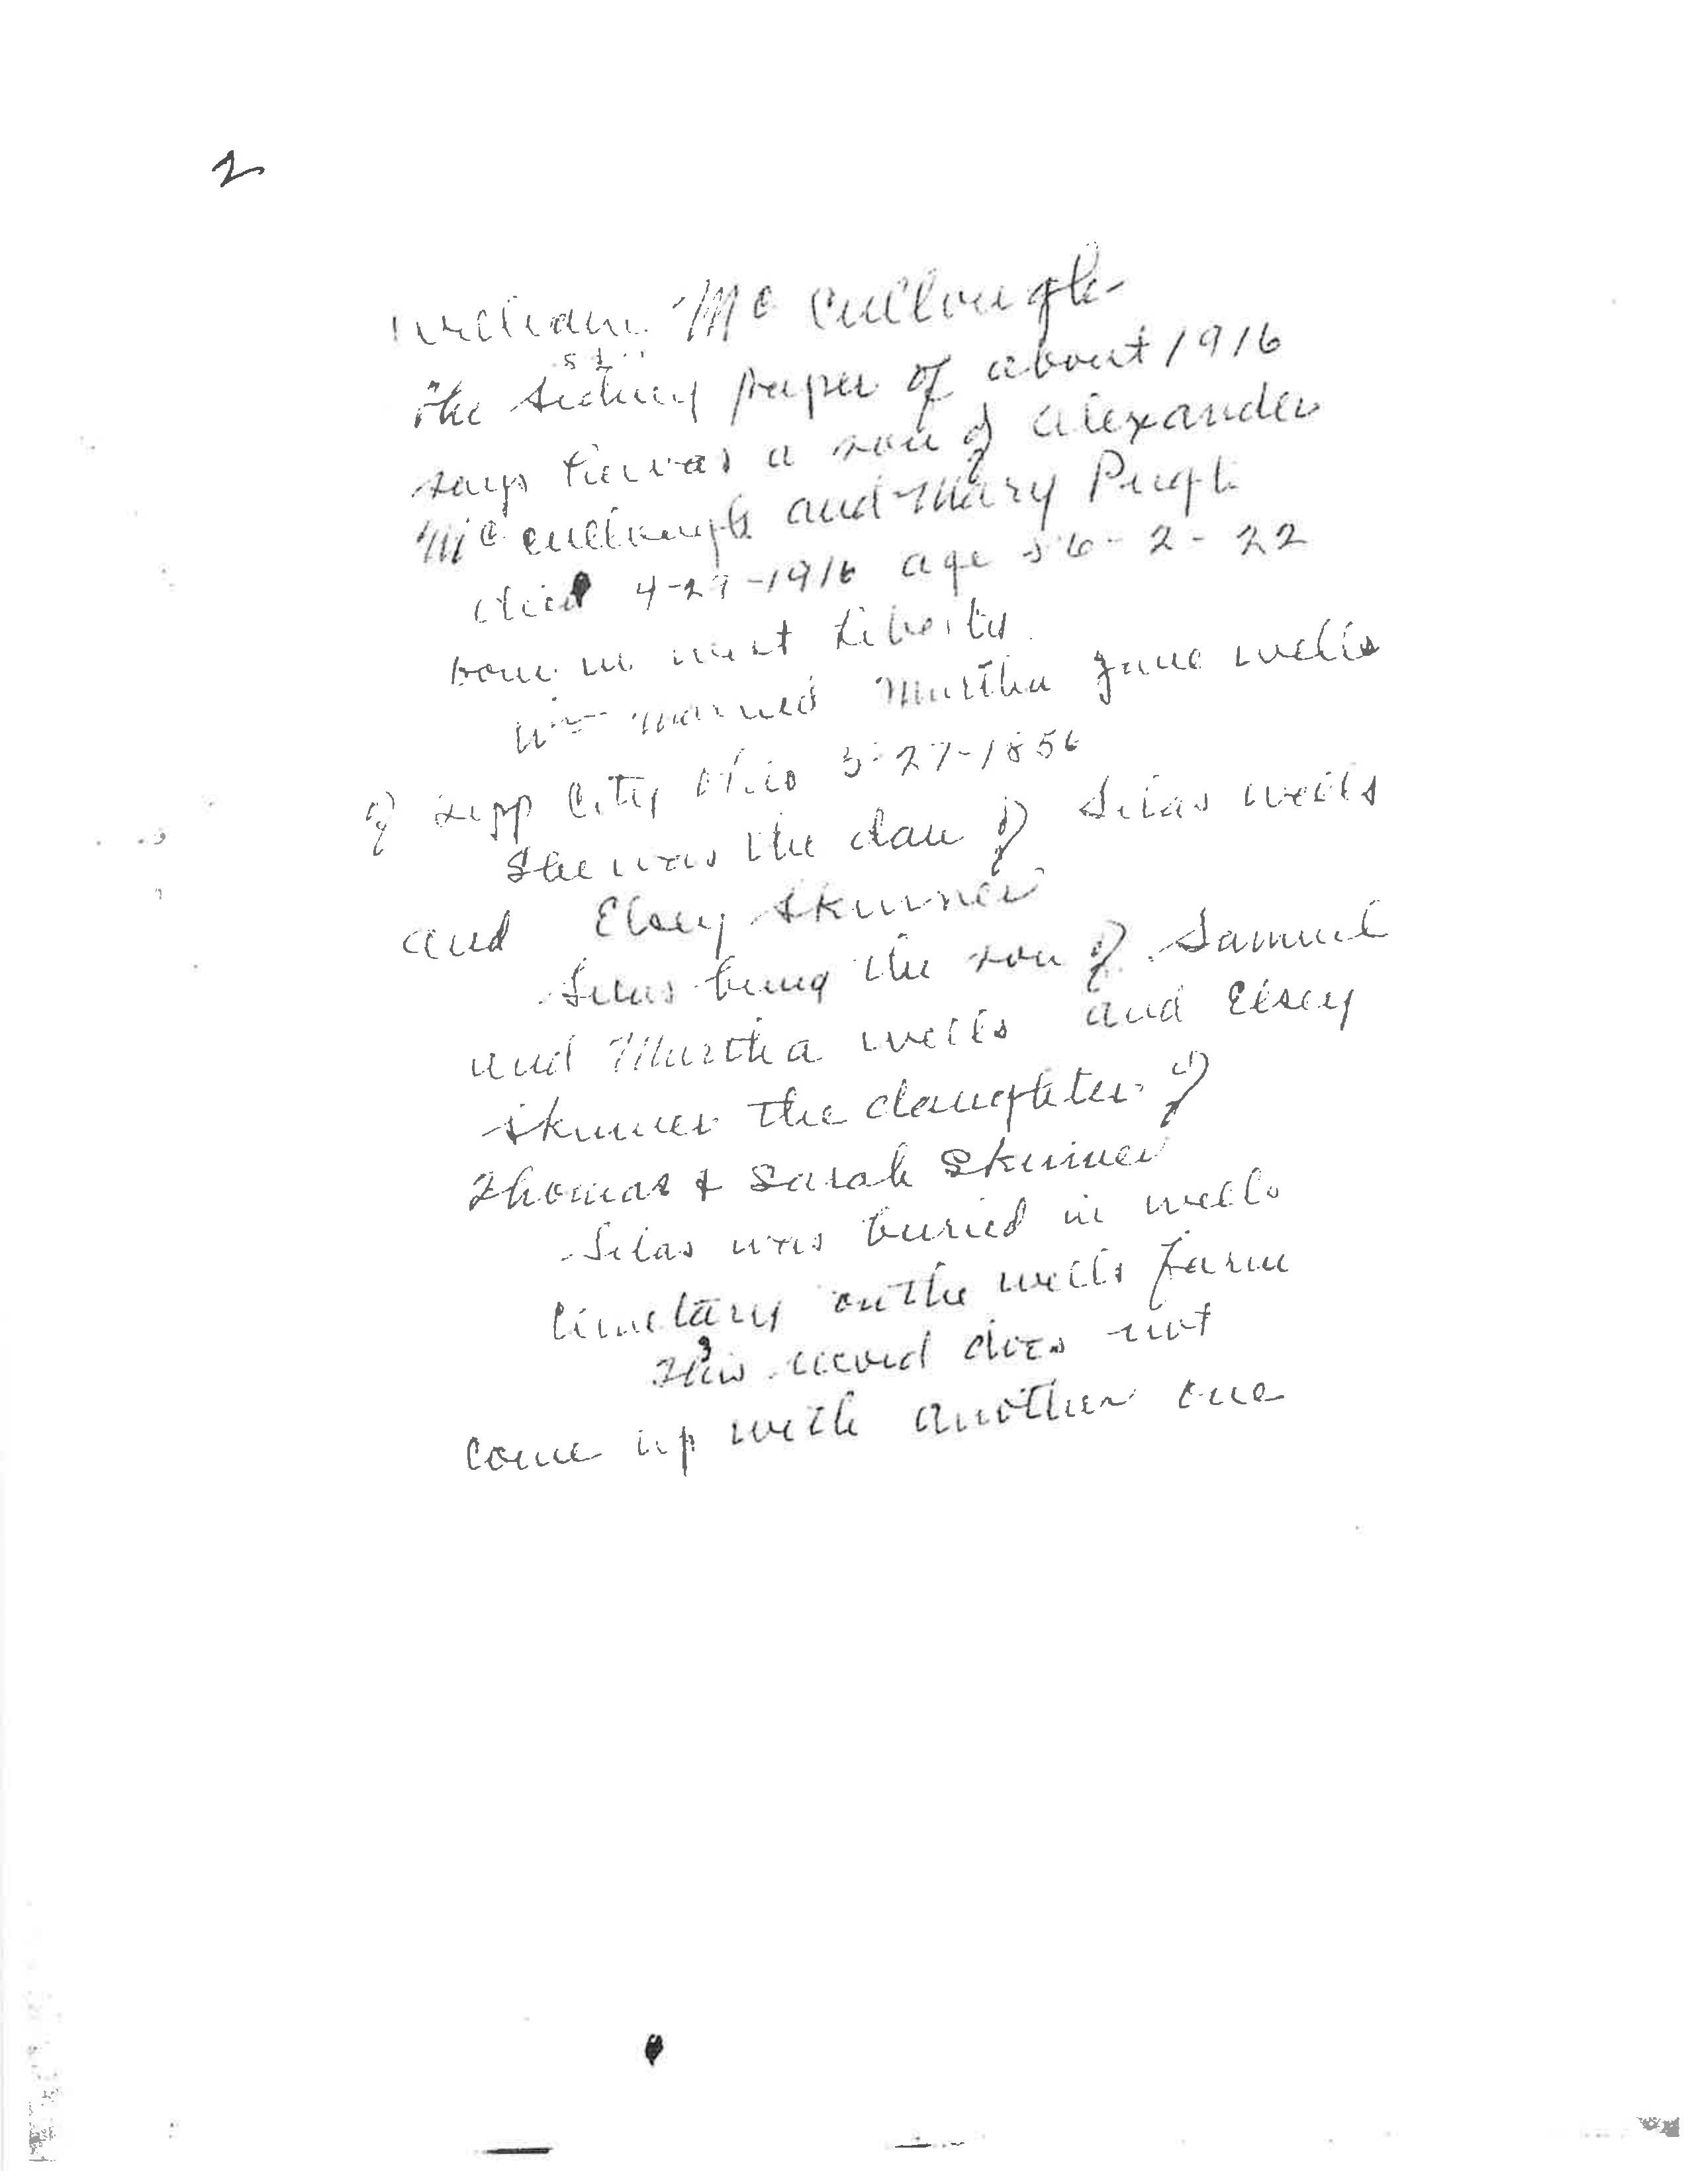 2
William Mc Cullough
The Sidney paper of about 1916
says he was a son of Alexander
Mc Cullough and Mary Pugh
died 4-29-1916 age 56-2-22
born in West Liberty
Wm married Martha Jane Wells
of Tipp City Ohio 3-27-1856
She was the dau of Silas Wells
and Elsey Skinner
Silas being the son of Samuel
and Martha Wells and Elsey
Skinner the daughter of
Thomas & Sarah Skinner
Silas was buried in Wells
Cimetary on the Wells farm
This record does not
come up with another one